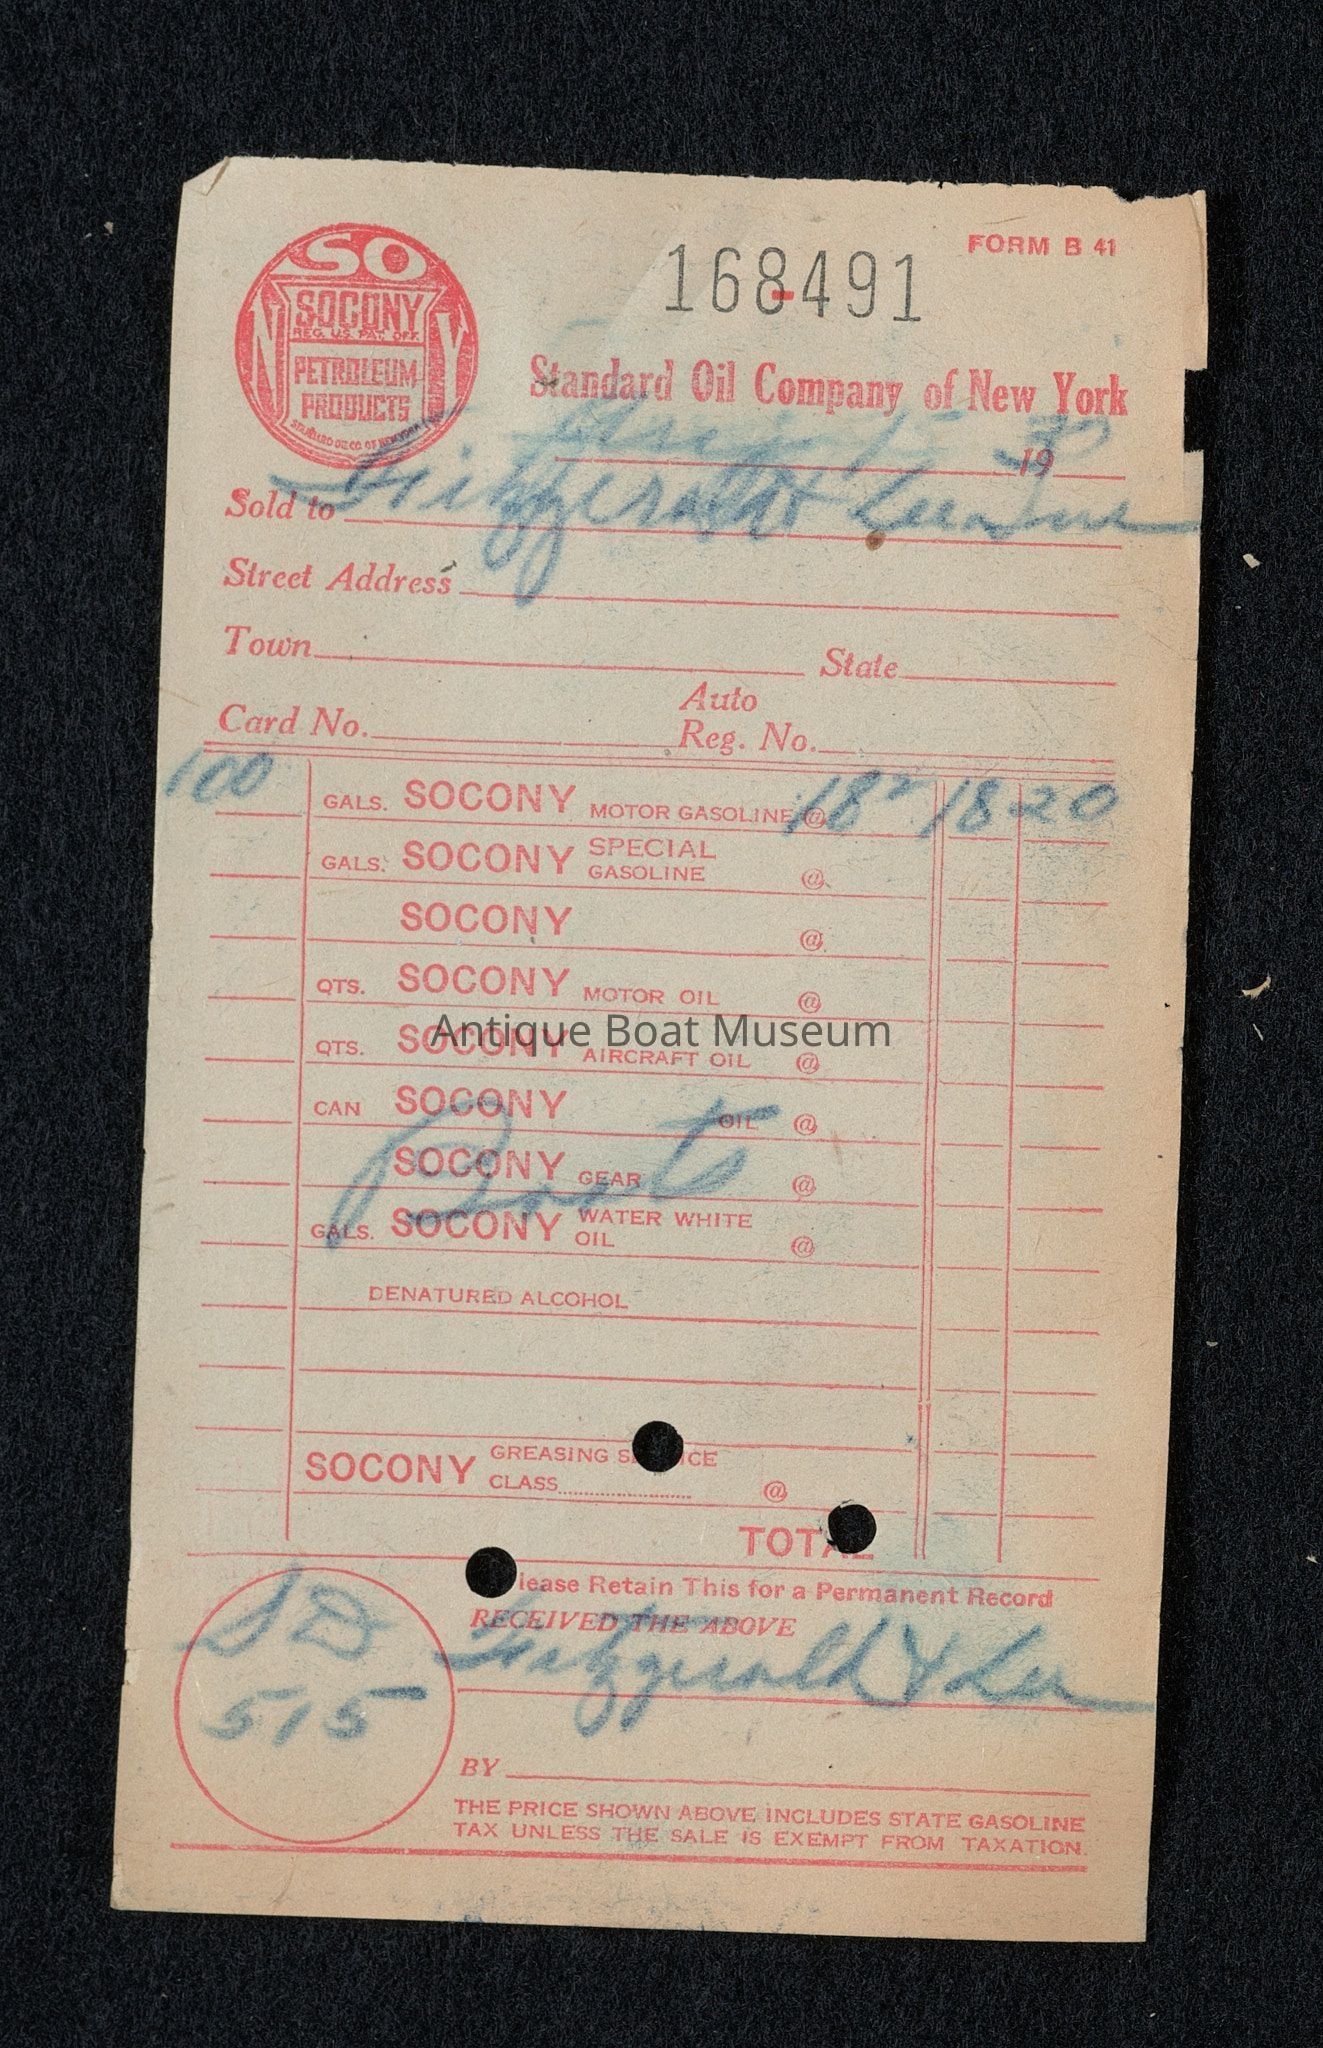 SO
NY
SOCONY
REG. U.S. PAT. OFF.
PETROLEUM
PRODUCTS
STANDARD OIL CO. OF NEW YORK
FORM B 41
168491
Standard Oil Company of New York
15 1930
Sold to Fitzgerald & Lee Inc
Street Address
Town State
Card No. Auto Reg. No.
100 GALS. SOCONY MOTOR GASOLINE @ 18 2 18 20
GALS. SOCONY SPECIAL GASOLINE @
SOCONY @
QTS. SOCONY MOTOR OIL @
QTS. SOCONY AIRCRAFT OIL @
Antique Boat Museum
CAN SOCONY OIL @
SOCONY GEAR @
GALS. SOCONY WATER WHITE OIL @
Boat
DENATURED ALCOHOL
SOCONY GREASING SERVICE
CLASS @
TOTAL
Please Retain This for a Permanent Record
RECEIVED THE ABOVE
Fitzgerald & Lee
SD
515
BY
THE PRICE SHOWN ABOVE INCLUDES STATE GASOLINE
TAX UNLESS THE SALE IS EXEMPT FROM TAXATION.